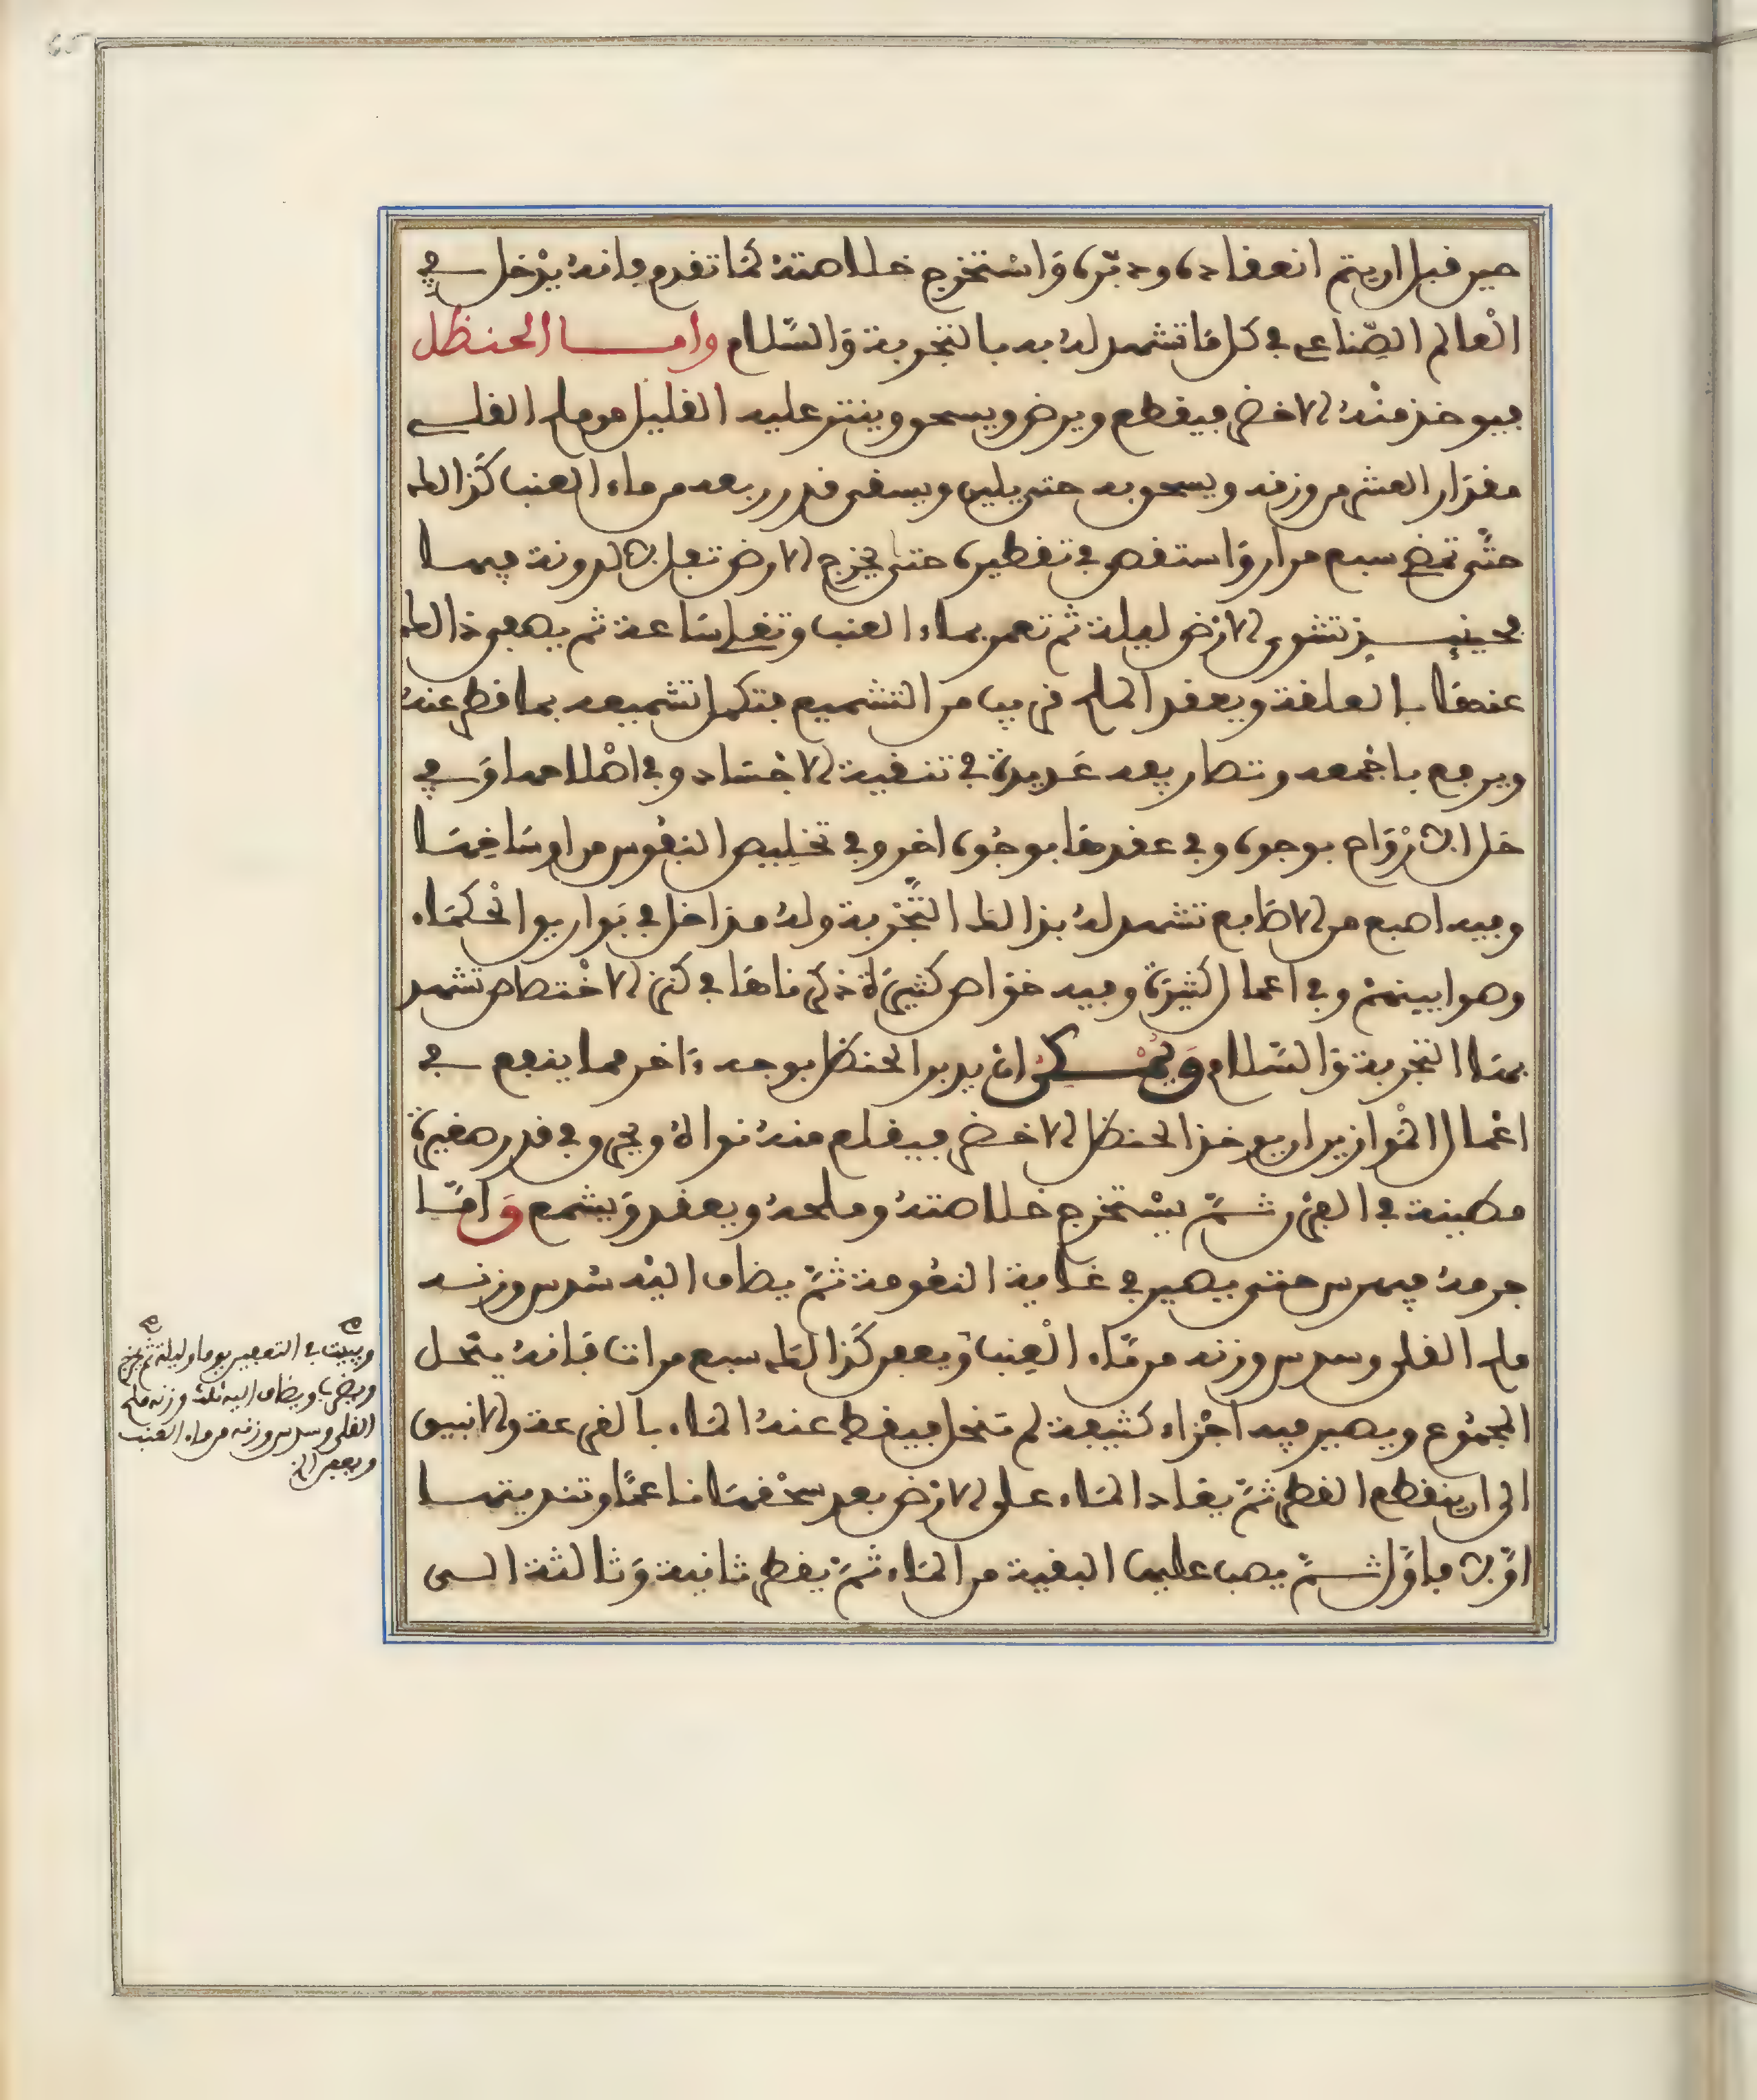 حين قبل ان يتم انعقاده ودبره واستخرج خلاصته كما تقدم فانه يدخل في
العالم الصناعي في كل ما تشهد له به بالتجربة والسلام واما الحنظل
فيوخذ منه الاخضر فيقطع ويرض ويسحق وينثر عليه القليل من ملح القلي
مقدار العشر من وزنه ويسحق به حتى يلين ويسقى قدر ربعه من ماء العنب كذالك
حتى تمضي سبع مرار واستقص في تقطيره حتى تخرج الارض تفلا لا لدونة فيها
فحينئذ تشوى الارض ليلة ثم تغمر بماء العنب وتغلى ساعة ثم يصفى ذالك
عنها بالعلقة ويعقد الملح قريبا من التشميع فتكمل تشميعه بما قطر عنه
ويرجع باجمعه وتصاريفه عديدة في تنقية الاجساد وفي اصلاحها وفي
حل الارواح بوجوه وفي عقدها بوجوه اخر وفي تخليص النفوس من اوساخها
وفيه اصبع من الاصابع تشهد له بذالك التجربة وله مداخل في بواريق الحكماء
وهو ابينهن وفي اعمال كثيرة وفيه خواص كثيرة ذكرناها في كنز الاختصاص تشهد
بها التجربة والسلام ويمكن ان يدبر الحنظل بوجه ءاخر مما ينفع في
اعمال الموازين ان يوخذ الحنظل الاخضر فيقلع منه نواه ويحرق في قدر صغيرة
مطينة في الفرن ثم يستخرج خلاصته وملحه ويعقد ويشمع واما
جرمه فيهرس حتى يصير في غاية النعومة ثم يضاف اليه سدس وزنه
ملح القلي وسدس وزنه من ماء العنب ويعفن كذالك سبع مرات فانه ينحل
المجموع ويصير فيه اجزاء كثيفة لم تنحل فيقطر عنه الماء بالقرعة والانبيق
الى ان ينقطع القطر ثم يعاد الماء على الارض بعد سحقها ناعما وتنديتها
اولا فاول ثم يصب عليها البقية من الماء ثم يقطر ثانية وثالثة الى
ويبيت في التعفين يوما وليلة ثم يخرج
ويضرب ويضاف اليه ثلث وزنه ملح
القلي وسدس وزنه من ماء العنب
ويعفن الخ